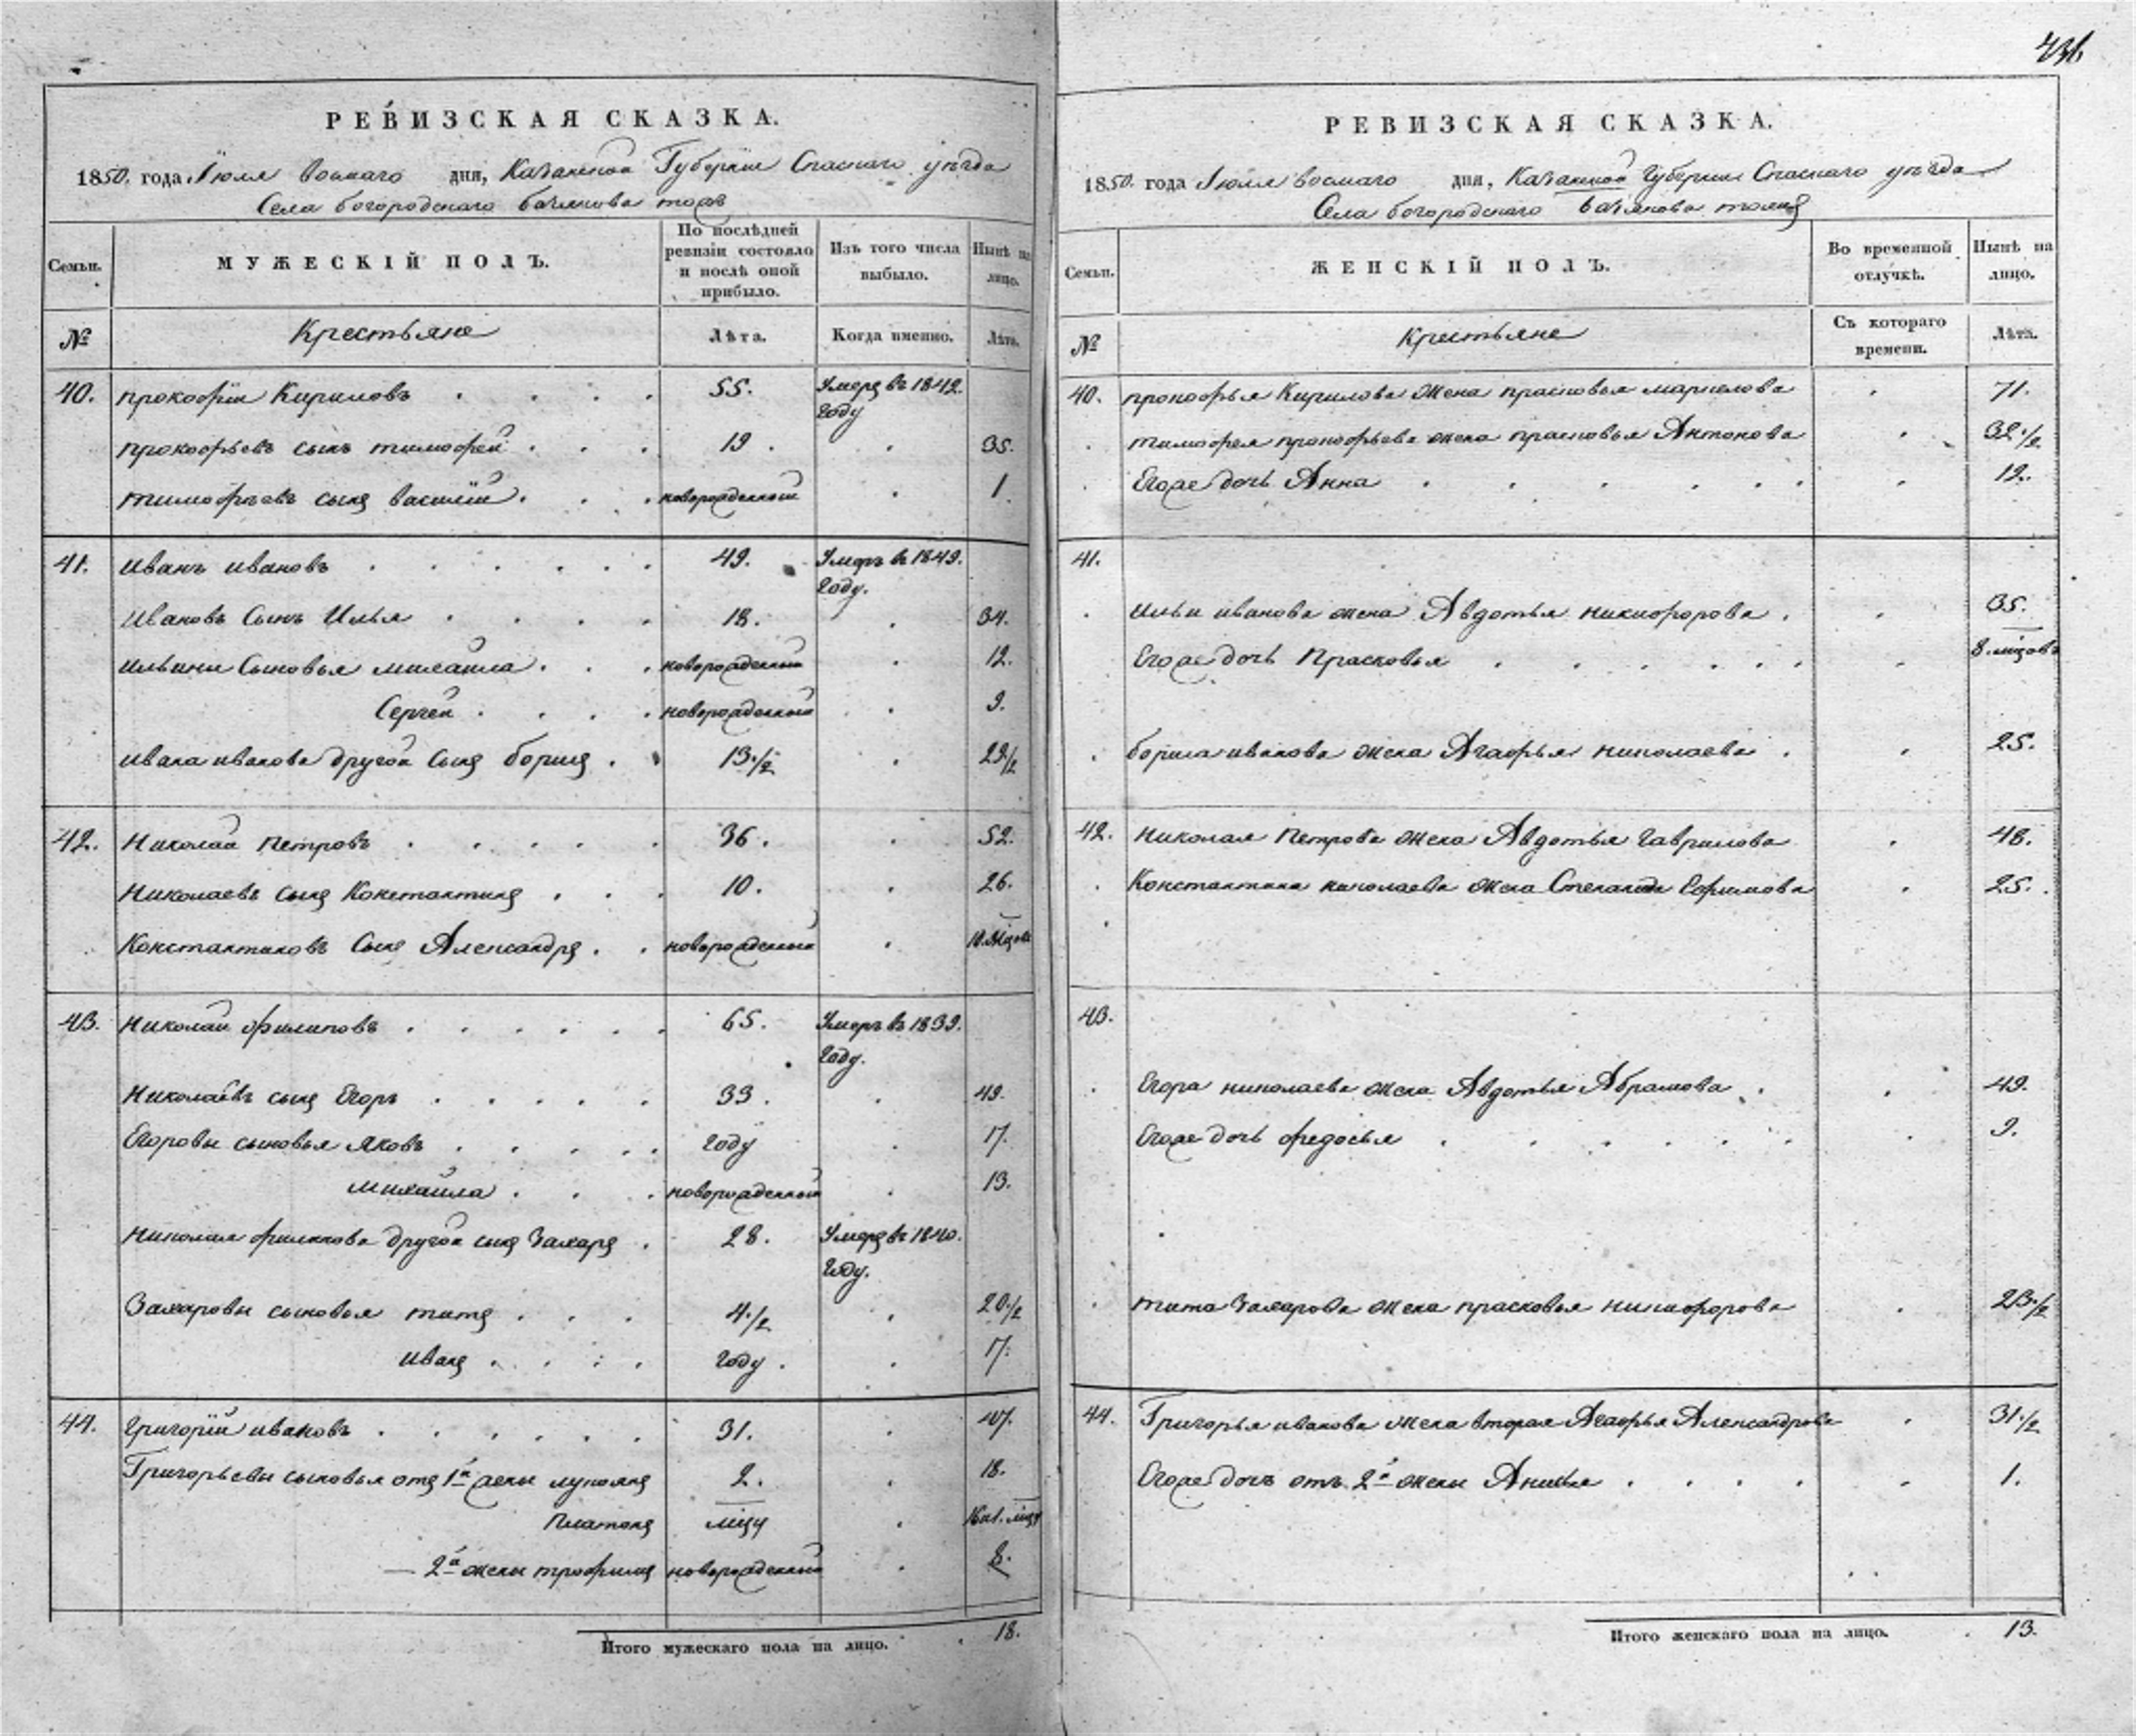 РЕВИЗСКАЯ СКАЗКА.
1850. года Июля восмаго дня, Казанской Губернии Спаскаго уѣзда
Села богородскаго
Семьи. МУЖЕСКІЙ ПОЛЪ. По послѣдней ревизіи состояло и послѣ оной прибыло. Изъ того числа выбыло. Нынѣ на лицо.
№ Крестьяне Лѣта. Когда именно. Лѣта.
40. прокофіи Кириловъ 55. Умеръ въ 1842. году
прокофьевъ сынъ тимофей 19. 35.
тимофѣевъ сынъ василій новорожденный 1.
41. иванъ ивановъ 49. Умеръ въ 1849. году.
ивановъ Сынъ Илья 18. 34.
ильины Сыновья михаила новорожденный 12.
Сергей новорожденный 9.
ивана иванова другой Сынъ борисъ 13 1/2 29 1/2
42. Николай петровъ 36. 52.
Николаевъ сынъ Константинъ 10. 26.
Константиновъ Сынъ Александръ новорожденный 10. мцовъ
43. Николай филиповъ 65. Умеръ въ 1839. году.
Николаевъ сынъ Егоръ 33. 49.
Егоровы сыновья яковъ году 17.
михаила новорожденный 13.
николая филипова другой сынъ Захаръ 28. Умеръ въ 1840. году.
Захаровы сыновья титъ 4 1/2 20 1/2
иванъ году. 17.
44. Григорій ивановъ 31. 47.
Григорьевы сыновья отъ 1й жены лукоянъ 2. 18.
Платонъ мцу 16 и 1. мцъ
— 2й жены трофимъ новорожденный 8.
Итого мужескаго пола на лицо. 18.
РЕВИЗСКАЯ СКАЗКА.
1850. года Июля восмаго дня, Казанской Губернии Спаскаго уѣзда
Села богородскаго
Семьи. ЖЕНСКІЙ ПОЛЪ. Во временной отлучкѣ. Нынѣ на лицо.
№ Крестьяне Съ котораго времени. Лѣта.
40. прокофья Кирилова жена прасковья маркелова 71.
тимофея прокофьева жена прасковья Антонова 32 1/2
Егоже дочь Анна 12.
41.
ильи иванова жена Авдотья никифорова 35.
Егоже дочь Прасковья 8. мцовъ
бориса иванова жена Агафья николаева 25.
42. николая Петрова жена Авдотья гаврилова 48.
Константина николаева жена Степанида Ефимова 25.
43.
Егора николаева жена Авдотья Абрамова 49.
Егоже дочь федосья 9.
тита Захарова жена прасковья никифорова 23 1/2
44. Григорья иванова жена вторая Агафья Александрова 31 1/2
Егоже дочь отъ 2й жены Анисья 1.
Итого женскаго пола на лицо. 13.